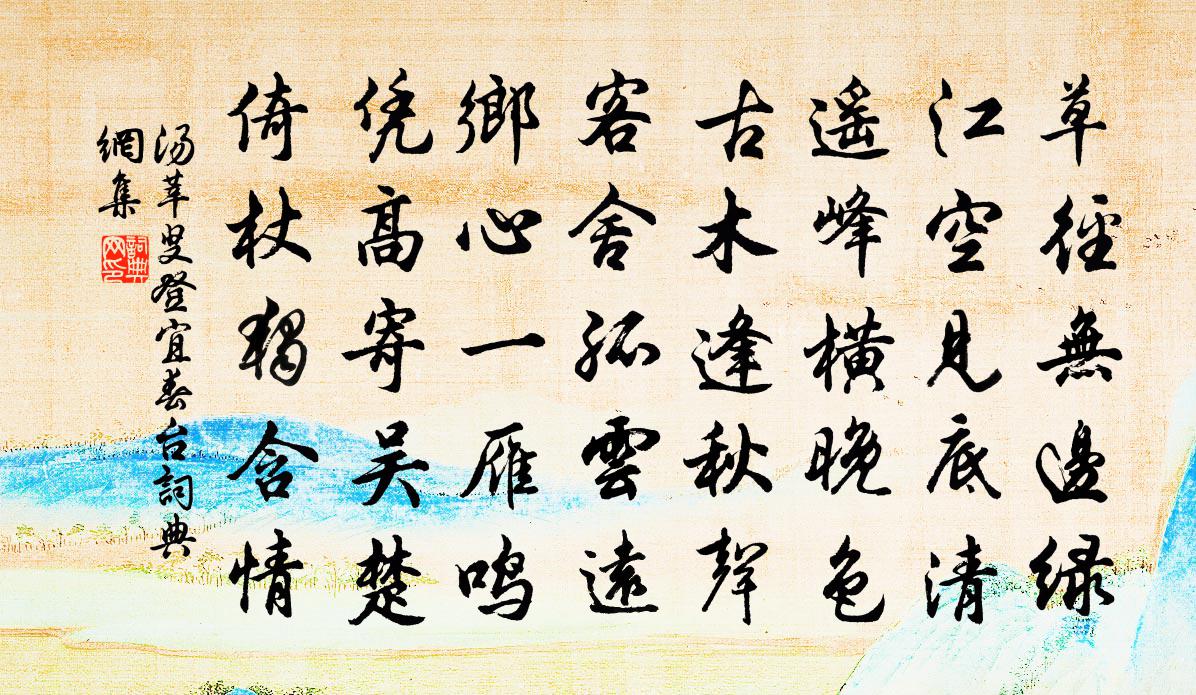 草徑無邊綠
江空見底清
遥峰橫晚色
古木逢秋聲
客舍孤雲遠
鄉心一雁鸣
凭高寄吴楚
倚杖獨含情
汤莘叟登宜春台詞典
網集
詞典
网印